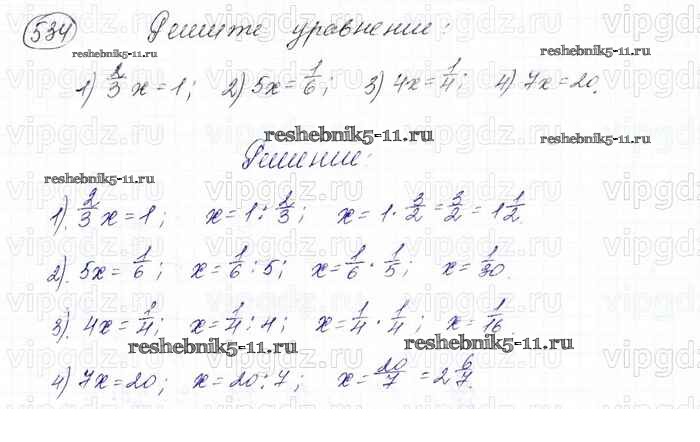 534 Решите уравнение:
reshebnik5-11.ru
1) 2/3 x = 1; 2) 5x = 1/6; 3) 4x = 1/4; 4) 7x = 20.
reshebnik5-11.ru
reshebnik5-11.ru
reshebnik5-11.ru
Решение:
reshebnik5-11.ru
1). 2/3 x = 1; x = 1 : 2/3; x = 1 · 3/2 = 3/2 = 1 1/2.
2). 5x = 1/6; x = 1/6 : 5; x = 1/6 · 1/5; x = 1/30.
3). 4x = 1/4; x = 1/4 : 4; x = 1/4 · 1/4; x = 1/16.
reshebnik5-11.ru
reshebnik5-11.ru
4) 7x = 20; x = 20 : 7; x = 20/7 = 2 6/7.